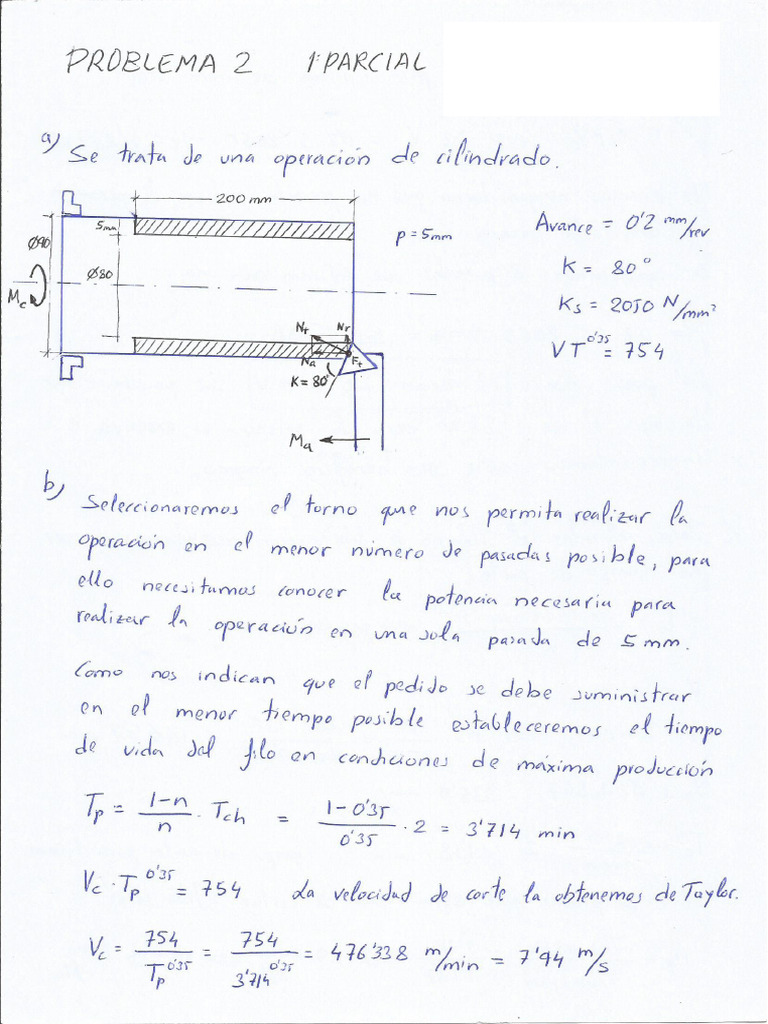 PROBLEMA 2 1º PARCIAL
a) Se trata de una operación de cilindrado.
200 mm
5mm
Ø90
Ø80
p = 5mm
Mc
Nt
Nr
Na
Ft
K = 80°
Ma
Avance = 0'2 mm/rev
K = 80°
Ks = 2050 N/mm²
VT^0'35 = 754
b) Seleccionaremos el torno que nos permita realizar la
operación en el menor número de pasadas posible, para
ello necesitamos conocer la potencia necesaria para
realizar la operación en una sola pasada de 5 mm.
Como nos indican que el pedido se debe suministrar
en el menor tiempo posible estableceremos el tiempo
de vida del filo en condiciones de máxima producción
Tp = (1-n)/n · Tch = (1-0'35)/0'35 · 2 = 3'714 min
Vc · Tp^0'35 = 754 La velocidad de corte la obtenemos de Taylor.
Vc = 754/Tp^0'35 = 754/3'714^0'35 = 476'338 m/min = 7'94 m/s